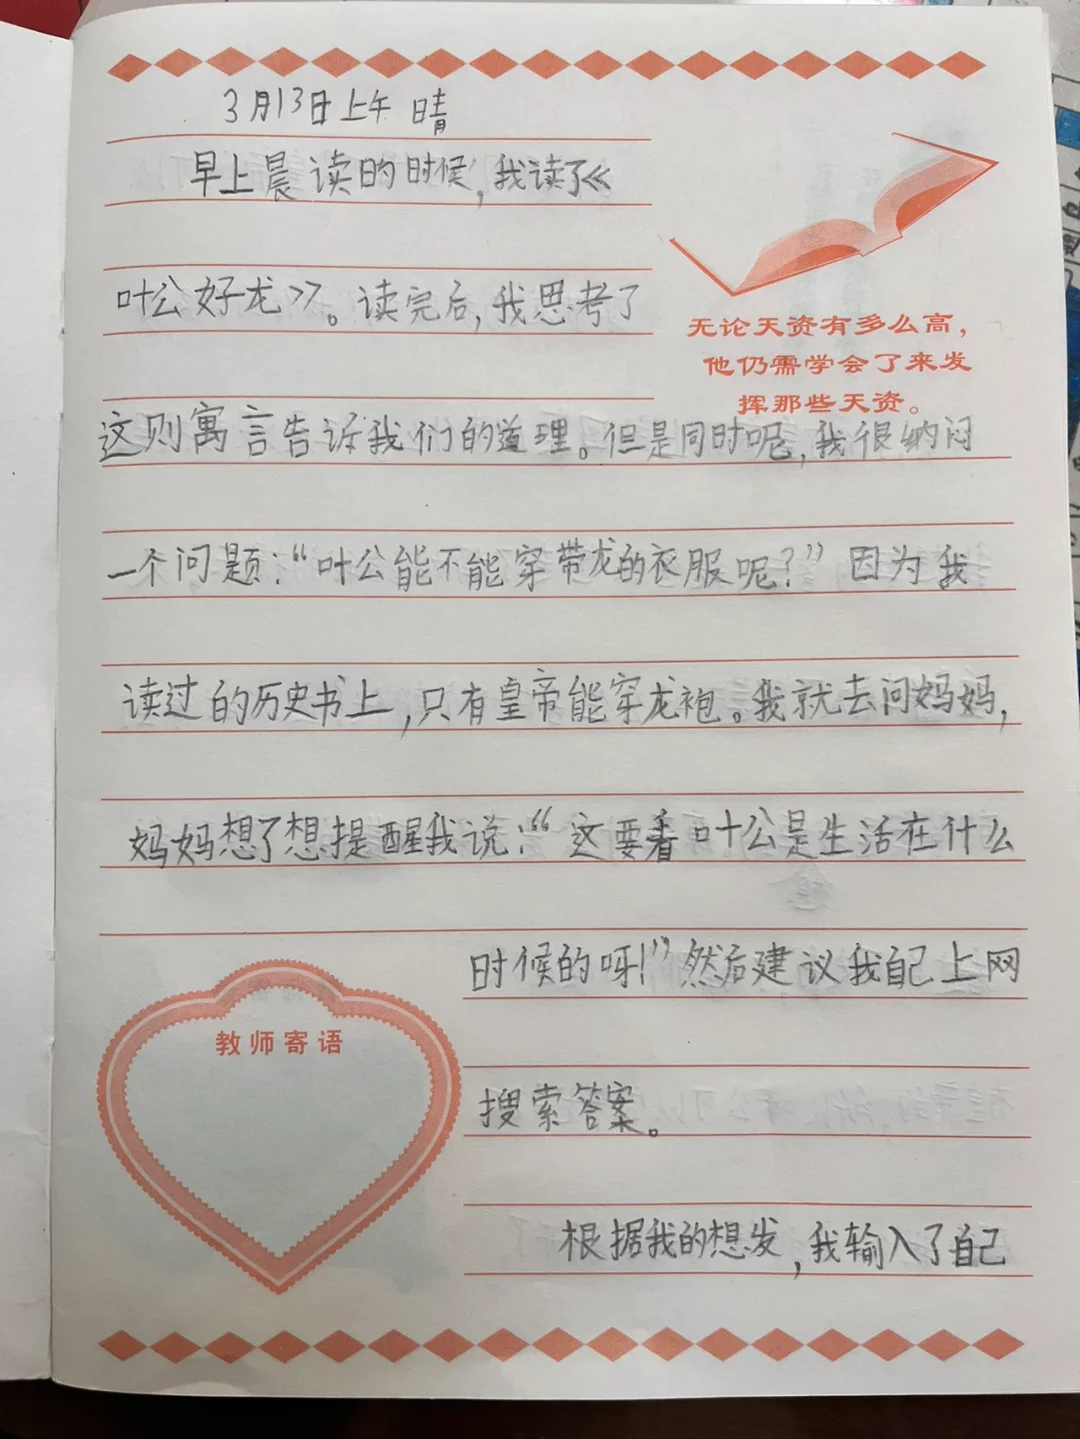 3月13日上午 晴
早上晨读的时候,我读了《
叶公好龙》。读完后,我思考了
无论天资有多么高，
他仍需学会了来发
挥那些天资。
这则寓言告诉我们的道理。但是同时呢,我很纳闷
一个问题:“叶公能不能穿带龙的衣服呢?”因为我
读过的历史书上,只有皇帝能穿龙袍。我就去问妈妈,
妈妈想了想提醒我说:“这要看叶公是生活在什么
时候的呀!”然后建议我自己上网
教师寄语
搜索答案。
根据我的想发,我输入了自己